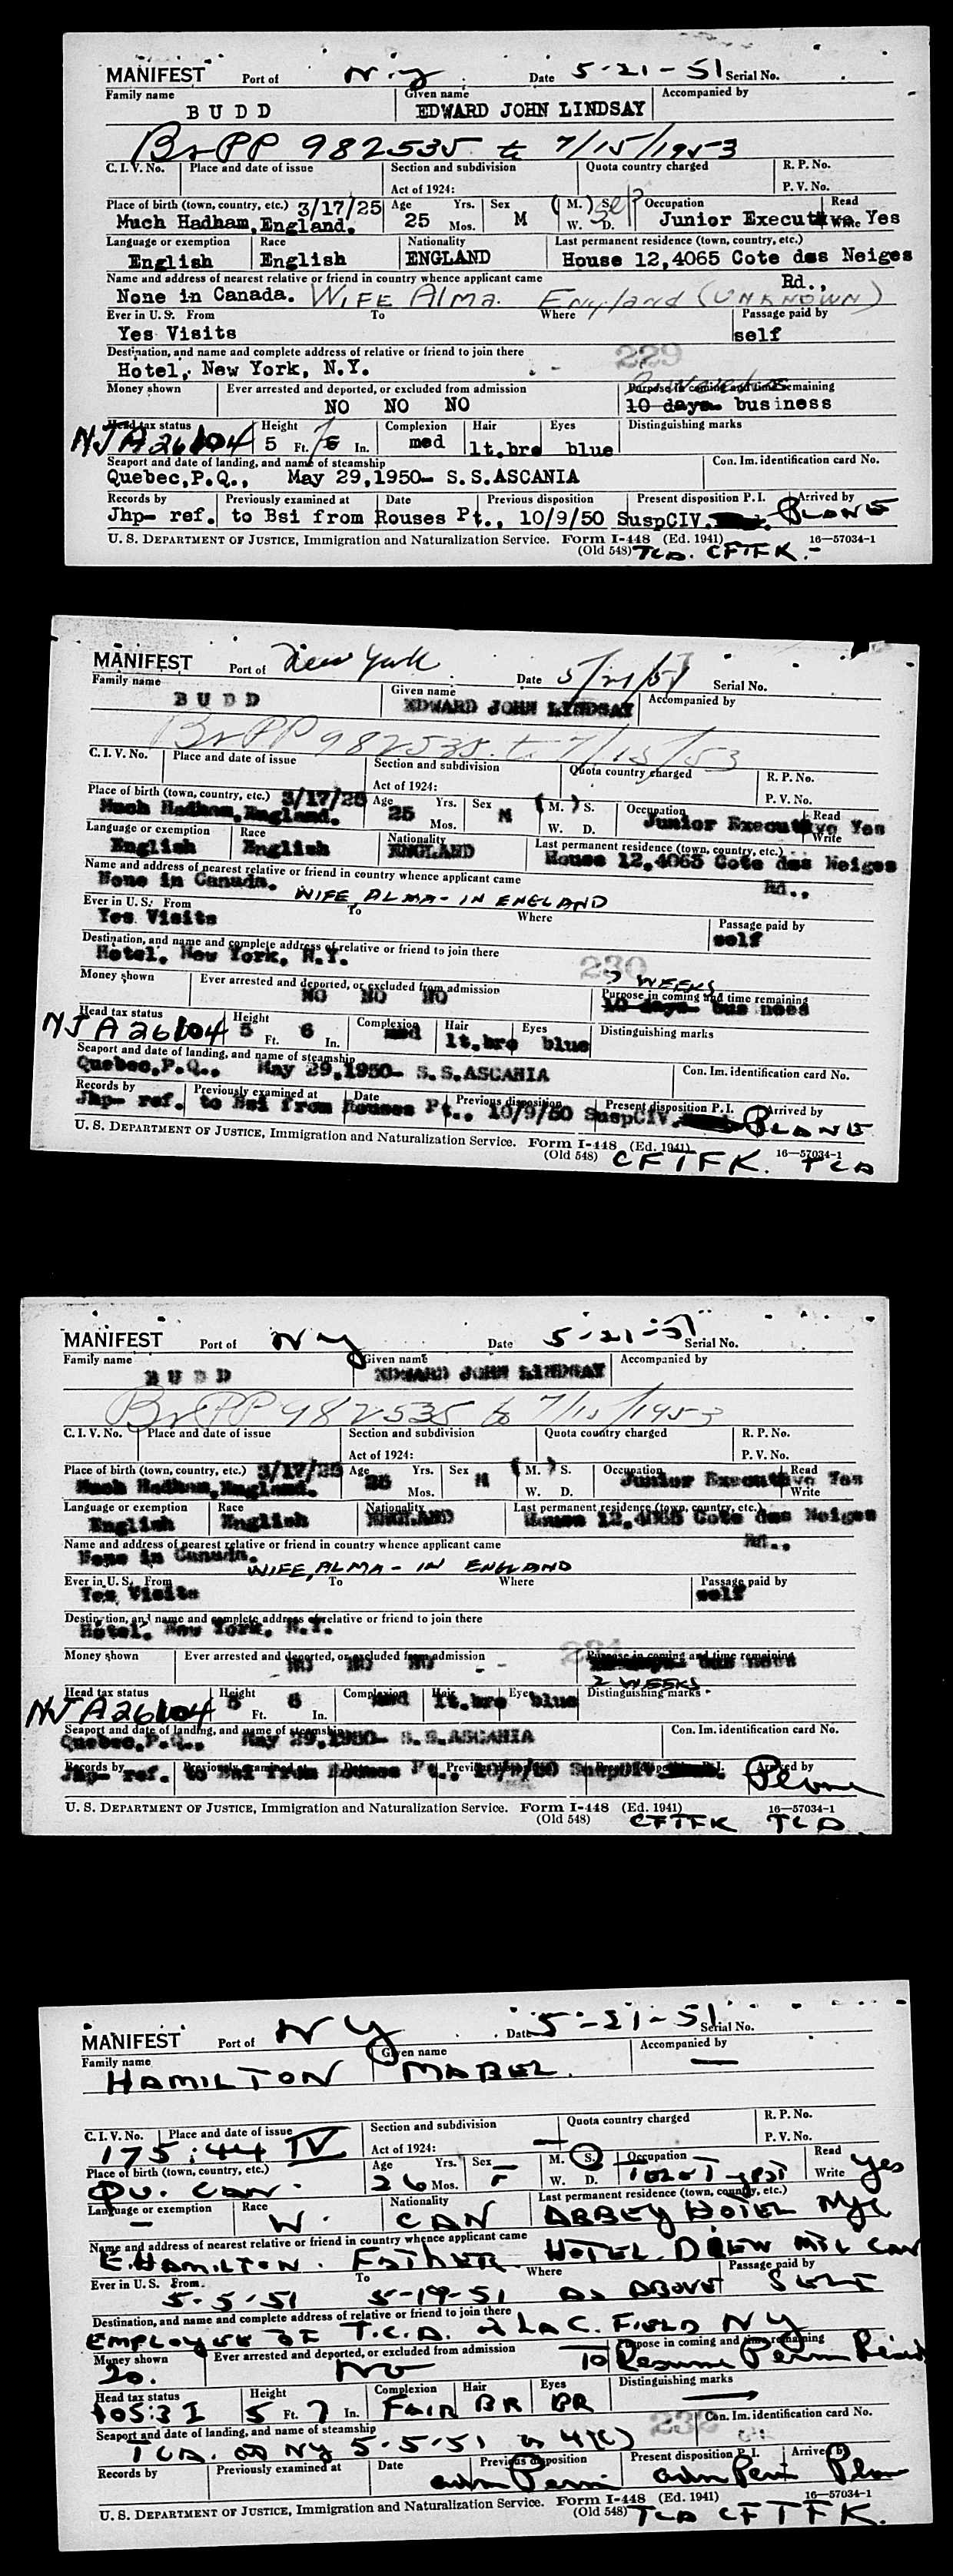 MANIFEST Port of N-Y Date 5-21-51 Serial No.
Family name Given name Accompanied by
BUDD EDWARD JOHN LINDSAY
Br PP 982535 to 7/15/1953
C. I. V. No. Place and date of issue Section and subdivision Quota country charged R. P. No.
Act of 1924: P. V. No.
Place of birth (town, country, etc.) 3/17/25 Age Yrs. Sex (M.) S. Occupation Read
Much Hadham, England. 25 Mos. M W. D. Junior Executive Write Yes
Language or exemption Race Nationality Last permanent residence (town, country, etc.)
English English ENGLAND House 12,4065 Cote des Neiges
Name and address of nearest relative or friend in country whence applicant came Rd.,
None in Canada. WIFE Alma. England (UNKNOWN)
Ever in U. S. From To Where Passage paid by
Yes Visits self
Destination, and name and complete address of relative or friend to join there 229
Hotel, New York, N.Y.
Money shown Ever arrested and deported, or excluded from admission Purpose in coming and time remaining
NO NO NO 10 days business
Head tax status Height Complexion Hair Eyes Distinguishing marks
NJ A26104 5 Ft. 6 In. med lt.bro blue
Seaport and date of landing, and name of steamship Con. Im. identification card No.
Quebec,P.Q., May 29,1950- S.S.ASCANIA
Records by Previously examined at Date Previous disposition Present disposition P. I. Arrived by
Jhp- ref. to Bsi from Rouses Pt., 10/9/50 SuspCIV. PLANE
U. S. DEPARTMENT OF JUSTICE, Immigration and Naturalization Service. Form I-448 (Ed. 1941) 16—57034-1
(Old 548) TCA. CFTFK.-
MANIFEST Port of New York Date 5/21/51 Serial No.
Family name Given name Accompanied by
BUDD EDWARD JOHN LINDSAY
Br PP 982535 to 7/15/53
C. I. V. No. Place and date of issue Section and subdivision Quota country charged R. P. No.
Act of 1924: P. V. No.
Place of birth (town, country, etc.) 3/17/25 Age Yrs. Sex (M.) S. Occupation Read
Much Hadham, England. 25 Mos. M W. D. Junior Executive Write Yes
Language or exemption Race Nationality Last permanent residence (town, country, etc.)
English English ENGLAND House 12,4065 Cote des Neiges
Name and address of nearest relative or friend in country whence applicant came Rd.,
None in Canada. WIFE, ALMA - IN ENGLAND
Ever in U. S. From To Where Passage paid by
Yes Visits self
Destination, and name and complete address of relative or friend to join there
Hotel, New York, N.Y. 230 2 WEEKS
Money shown Ever arrested and deported, or excluded from admission Purpose in coming and time remaining
NO NO NO 10 days business
Head tax status Height Complexion Hair Eyes Distinguishing marks
NJ A26104 5 Ft. 6 In. med lt.bro blue
Seaport and date of landing, and name of steamship Con. Im. identification card No.
Quebec,P.Q., May 29,1950- S.S.ASCANIA
Records by Previously examined at Date Previous disposition Present disposition P. I. Arrived by
Jhp- ref. to Bsi from Rouses Pt., 10/9/50 SuspCIV. PLANE
U. S. DEPARTMENT OF JUSTICE, Immigration and Naturalization Service. Form I-448 (Ed. 1941) 16—57034-1
(Old 548) CFTFK. TCA
MANIFEST Port of NY Date 5-21-51 Serial No.
Family name Given name Accompanied by
BUDD EDWARD JOHN LINDSAY
Br PP 982535 to 7/15/1953
C. I. V. No. Place and date of issue Section and subdivision Quota country charged R. P. No.
Act of 1924: P. V. No.
Place of birth (town, country, etc.) 3/17/25 Age Yrs. Sex (M.) S. Occupation Read
Much Hadham, England. 25 Mos. M W. D. Junior Executive Write Yes
Language or exemption Race Nationality Last permanent residence (town, country, etc.)
English English ENGLAND House 12,4065 Cote des Neiges
Name and address of nearest relative or friend in country whence applicant came Rd.,
None in Canada. WIFE, ALMA - IN ENGLAND
Ever in U. S. From To Where Passage paid by
Yes Visits self
Destination, and name and complete address of relative or friend to join there
Hotel, New York, N.Y.
Money shown Ever arrested and deported, or excluded from admission Purpose in coming and time remaining
NO NO NO 10 days business
2 WEEKS
Head tax status Height Complexion Hair Eyes Distinguishing marks
NJ A26104 5 Ft. 6 In. med lt.bro blue
Seaport and date of landing, and name of steamship Con. Im. identification card No.
Quebec,P.Q., May 29,1950- S.S.ASCANIA
Records by Previously examined at Date Previous disposition Present disposition P. I. Arrived by
Jhp- ref. to Bsi from Rouses Pt., 10/9/50 SuspCIV. Plane
U. S. DEPARTMENT OF JUSTICE, Immigration and Naturalization Service. Form I-448 (Ed. 1941) 16—57034-1
(Old 548) CFTFK TCA
MANIFEST Port of NY Date 5-21-51 Serial No.
Family name Given name Accompanied by
HAMILTON MABEL. —
C. I. V. No. Place and date of issue Section and subdivision Quota country charged R. P. No.
175:44 IV Act of 1924: — P. V. No.
Place of birth (town, country, etc.) Age Yrs. Sex M. S. Occupation Read
QU. CAN. 26 Mos. F W. D. Write Yes
Language or exemption Race Nationality Last permanent residence (town, country, etc.)
— W. CAN ABBEY HOTEL NYC
Name and address of nearest relative or friend in country whence applicant came
E. HAMILTON. FATHER HOTEL DREW MTL CAN
Ever in U. S. From To Where Passage paid by
5-5-51 5-19-51 AS ABOVE SELF
Destination, and name and complete address of relative or friend to join there
EMPLOYEE OF T.C.A. LAG. FIELD NY
Money shown Ever arrested and deported, or excluded from admission Purpose in coming and time remaining
20. NO TO Resume Perm Resid
Head tax status Height Complexion Hair Eyes Distinguishing marks
105:3I 5 Ft. 7 In. FAIR BR BR —
Seaport and date of landing, and name of steamship 232 Con. Im. identification card No.
TCA. at NY 5-5-51 as 4(c)
Records by Previously examined at Date Previous disposition Present disposition P. I. Arrived by
adm Perm adm Perm Plane
U. S. DEPARTMENT OF JUSTICE, Immigration and Naturalization Service. Form I-448 (Ed. 1941) 16—57034-1
(Old 548) TCA CFTFK.